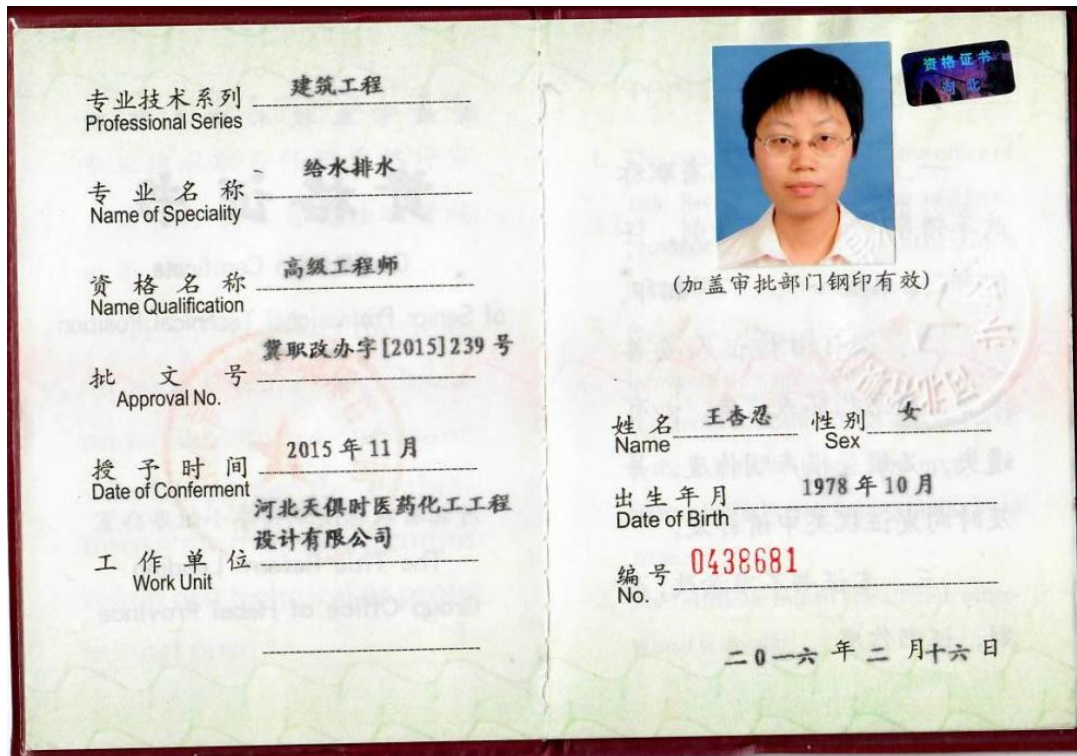 专业技术系列 建筑工程
Professional Series
专业名称 给水排水
Name of Speciality
资格名称 高级工程师
Name Qualification
冀职改办字[2015]239号
批文号
Approval No.
授予时间 2015年11月
Date of Conferment
河北天俱时医药化工工程
设计有限公司
工作单位
Work Unit
资格证书
(加盖审批部门钢印有效)
姓名 王杏忍 性别 女
Name Sex
出生年月 1978年10月
Date of Birth
编号 0438681
No.
二0一六年二月十六日